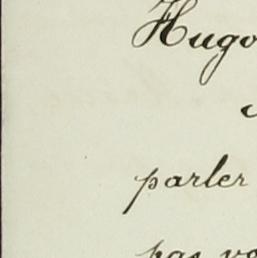 Hugo
parler
pas